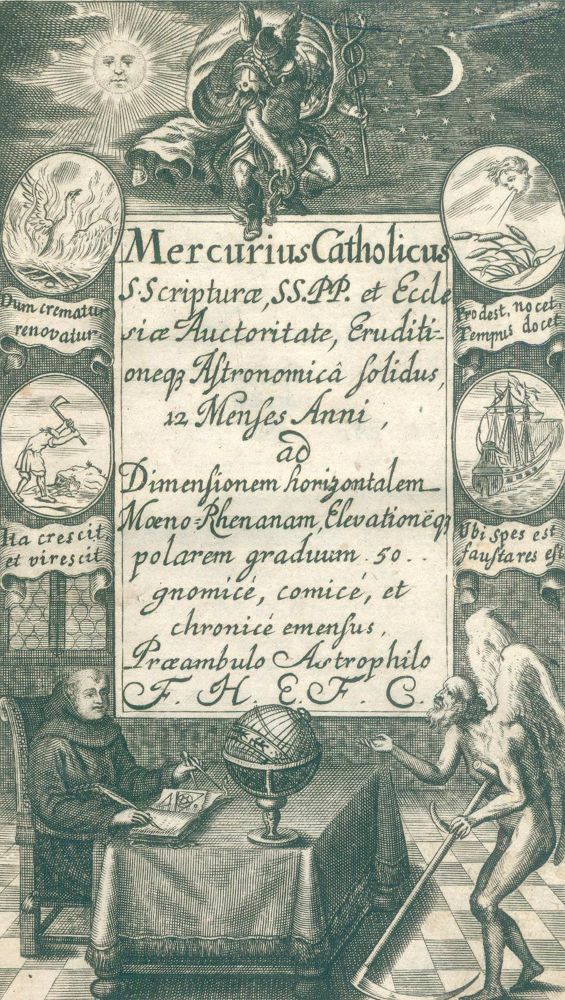 Mercurius Catholicus
S. Scripturæ, SS. PP. et Eccle
siæ Auctoritate, Eruditi-
oneq3 Astronomicâ solidus,
12 Menses Anni,
ad
Dimensionem horizontalem
Mœno-Rhenanam, Elevationēq3
polarem graduum 50.
gnomicé, comicé, et
chronicé emensus,
Præambulo Astrophilo
F. H. E. F. C.
Dum crematur
renovatur
Prodest, nocet,
Tempus docet
Ita crescit
et virescit
Ubi spes est
fausta res est